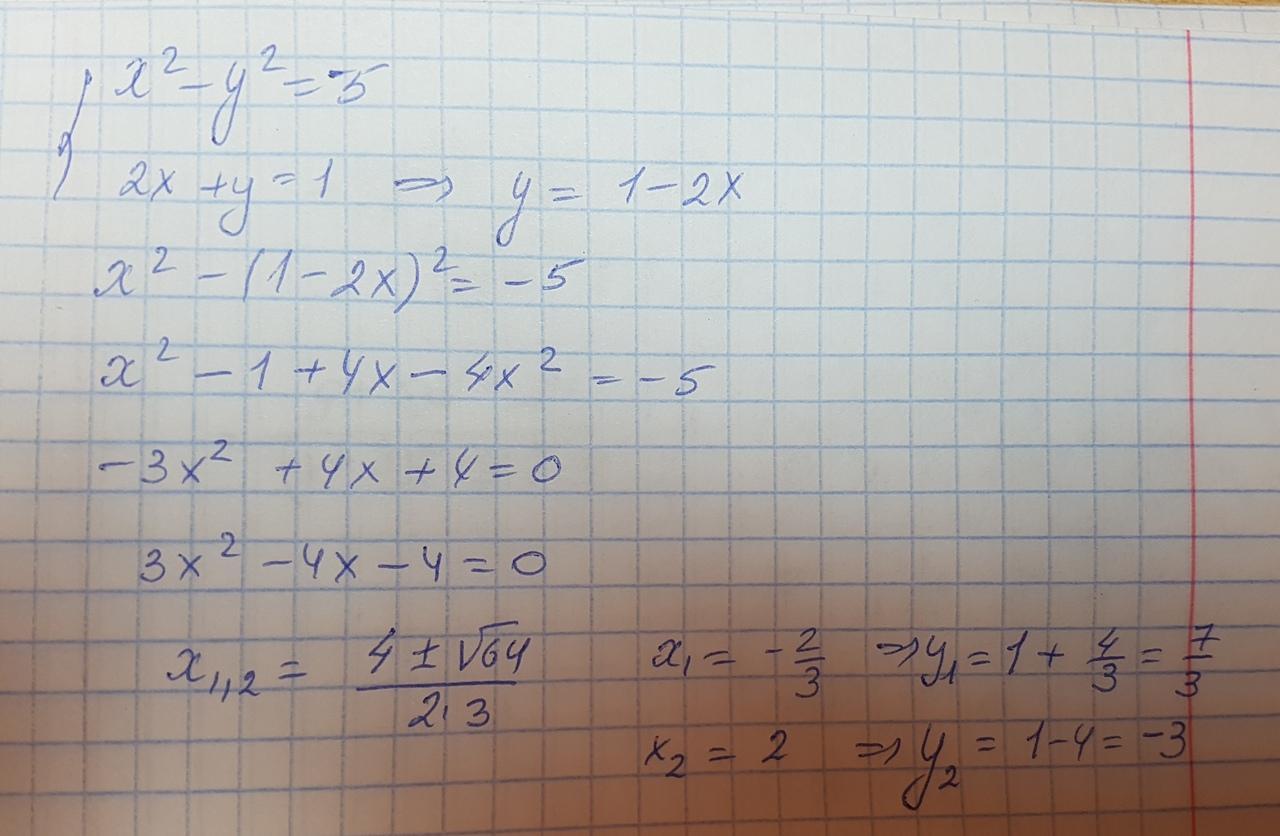 x² - y² = -5
2x + y = 1 ⇒ y = 1 - 2x
x² - (1 - 2x)² = -5
x² - 1 + 4x - 4x² = -5
-3x² + 4x + 4 = 0
3x² - 4x - 4 = 0
x₁,₂ = (4 ± √64) / (2·3) x₁ = -2/3 ⇒ y₁ = 1 + 4/3 = 7/3
x₂ = 2 ⇒ y₂ = 1 - 4 = -3